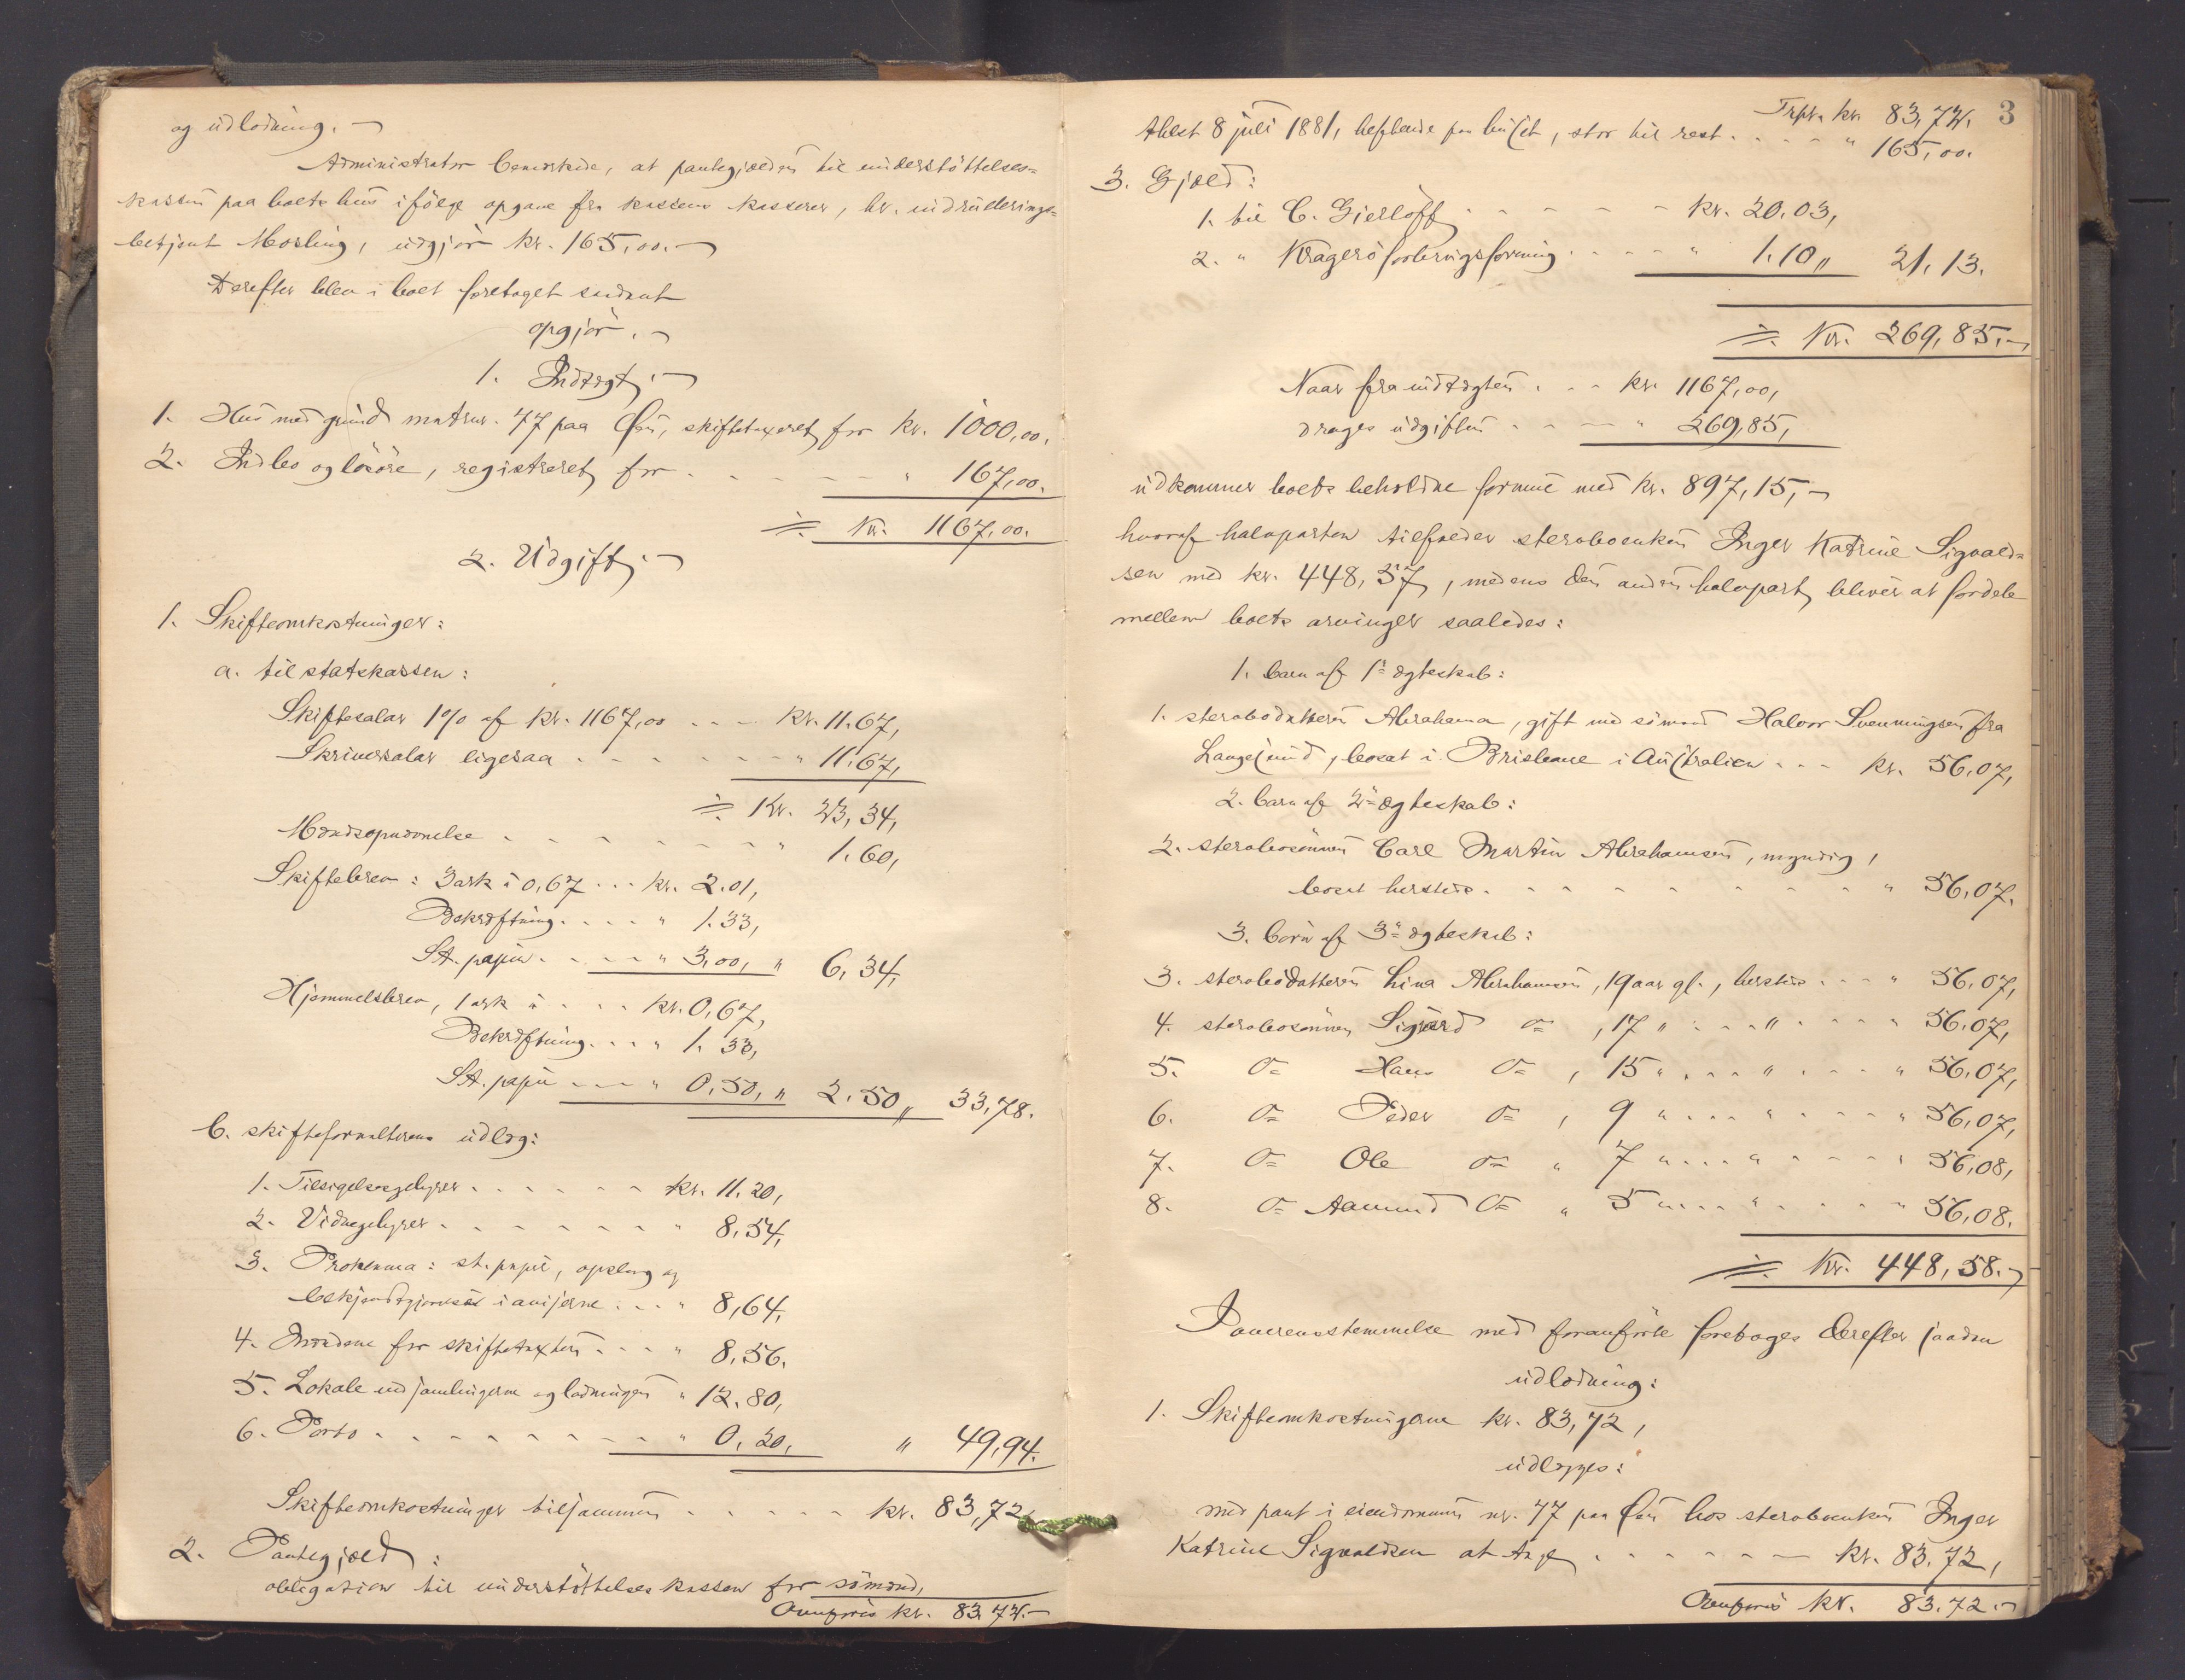 og udlodning. ‒
Administrator bemærkede, at pantegjælden til understöttelses-
kassen paa boets hus ifölge opgave fra kassens kasserer, hr. indrulerings-
betjent Morling, udgjör kr. 165,00. ‒
Derefter blev i boet foretaget saadant
opgjör. ‒
1. Indtægt. ‒
1. Hus med grund matrnr. 77 paa Öen, skiftetaxeret for kr. 1000,00.
2. Indbo og lösöre, registreret for . . . . . " 167,00.
÷ Kr. 1167,00.
2. Udgift. ‒
1. Skifteomkostninger:
a. til statskassen:
Skiftesalær 1% af kr. 1167,00 . . . kr. 11.67,
Skriversalær ligesaa . . . . . . " 11.67,
÷ Kr. 23,34,
Mændsopnævnelse . . . . . . . " 1.60,
Skiftebrev: 3 ark à 0,67 . . . kr. 2.01,
Bekræftning. . . . . " 1.33,
St. papir. . . . . " 3,00, " 6,34,
Hjemmelsbrev, 1 ark à . . . kr. 0,67,
Bekræftning. . . . " 1.33,
St. papir . . . " 0,50, " 2.50 " 33,78.
b. skifteforvalterens udlæg:
1. Tilsigelsesgebyrer . . . . . . kr. 11.20,
2. Vidnegebyrer . . . . . . . " 8,54,
3. Proklama: st. papir, opslag og
bekjendtgjörelse i aviserne . . . " 8,64,
4. Mændene for skiftetaxten . . . . " 8,56.
5. Lokale ved samlingerne og ladningen " 12.80,
6. Porto . . . . . . . . . " 0,20, " 49,94.
Skifteomkostninger tilsammen . . . . . kr. 83,72,
2. Pantegjæld:
obligation til understöttelseskassen for sömænd,
Overföres kr. 83,72. ‒
3
Trpt. kr. 83,72.
thlest 8 juli 1881, heftende paa huset, stor til rest. . . . . " 165,00.
3. Gjæld:
1. til C. Gierlöff . . . . . . kr. 20,03,
2. " Kragerö forbrugsforening. . . . " 1.10 " 21,13.
÷ Kr. 269,85. ‒
Naar fra indtægten . . . kr. 1167,00,
drages udgiften . . . . " 269,85,
udkommer boets beholdne formue med kr. 897,15, ‒
hvoraf halvparten tilfalder stervboenken Inger Katrine Sigvald-
sen med kr. 448,57, medens den anden halvpart bliver at fordele
mellem boets arvinger saaledes:
1. barn af 1ste ægteskab:
1. stervbodatteren Abrahama, gift med sömand Halvor Svenningsen fra
Langesund, bosat i Brisbane i Australien . . . kr. 56,07,
2. barn af 2det ægteskab:
2. stervbosönnen Carl Martin Abrahamsen, myndig,
bosat hersteds . . . . . . . . . . " 56,07.
3. börn af 3die ægteskab:
3. stervbodatteren Lina Abrahamsen, 19 aar gl., hersteds . . . " 56,07,
4. stervbosönnen Sigvard do , 17 " . . . " . . . . " 56,07,
5. do Hans do , 15 " . . . " . . . . " 56,07,
6. do Peder do , 9 " . . . " . . . . " 56,07,
7. do Ole do " 7 " . . . " . . . . " 56,08,
8. do Aamund do " 5 " . . . " . . . . " 56,08.
÷ Kr. 448,58. ‒
I overensstemmelse med foranförte foretages derefter saadan
udlodning:
1. Skifteomkostningerne kr. 83,72,
udlægges:
med pant i eiendommen nr. 77 paa Öen hos stervboenken Inger
Katrine Sigvaldsen at tage . . . . . . . kr. 83,72,
Overföres kr. 83.72. ‒